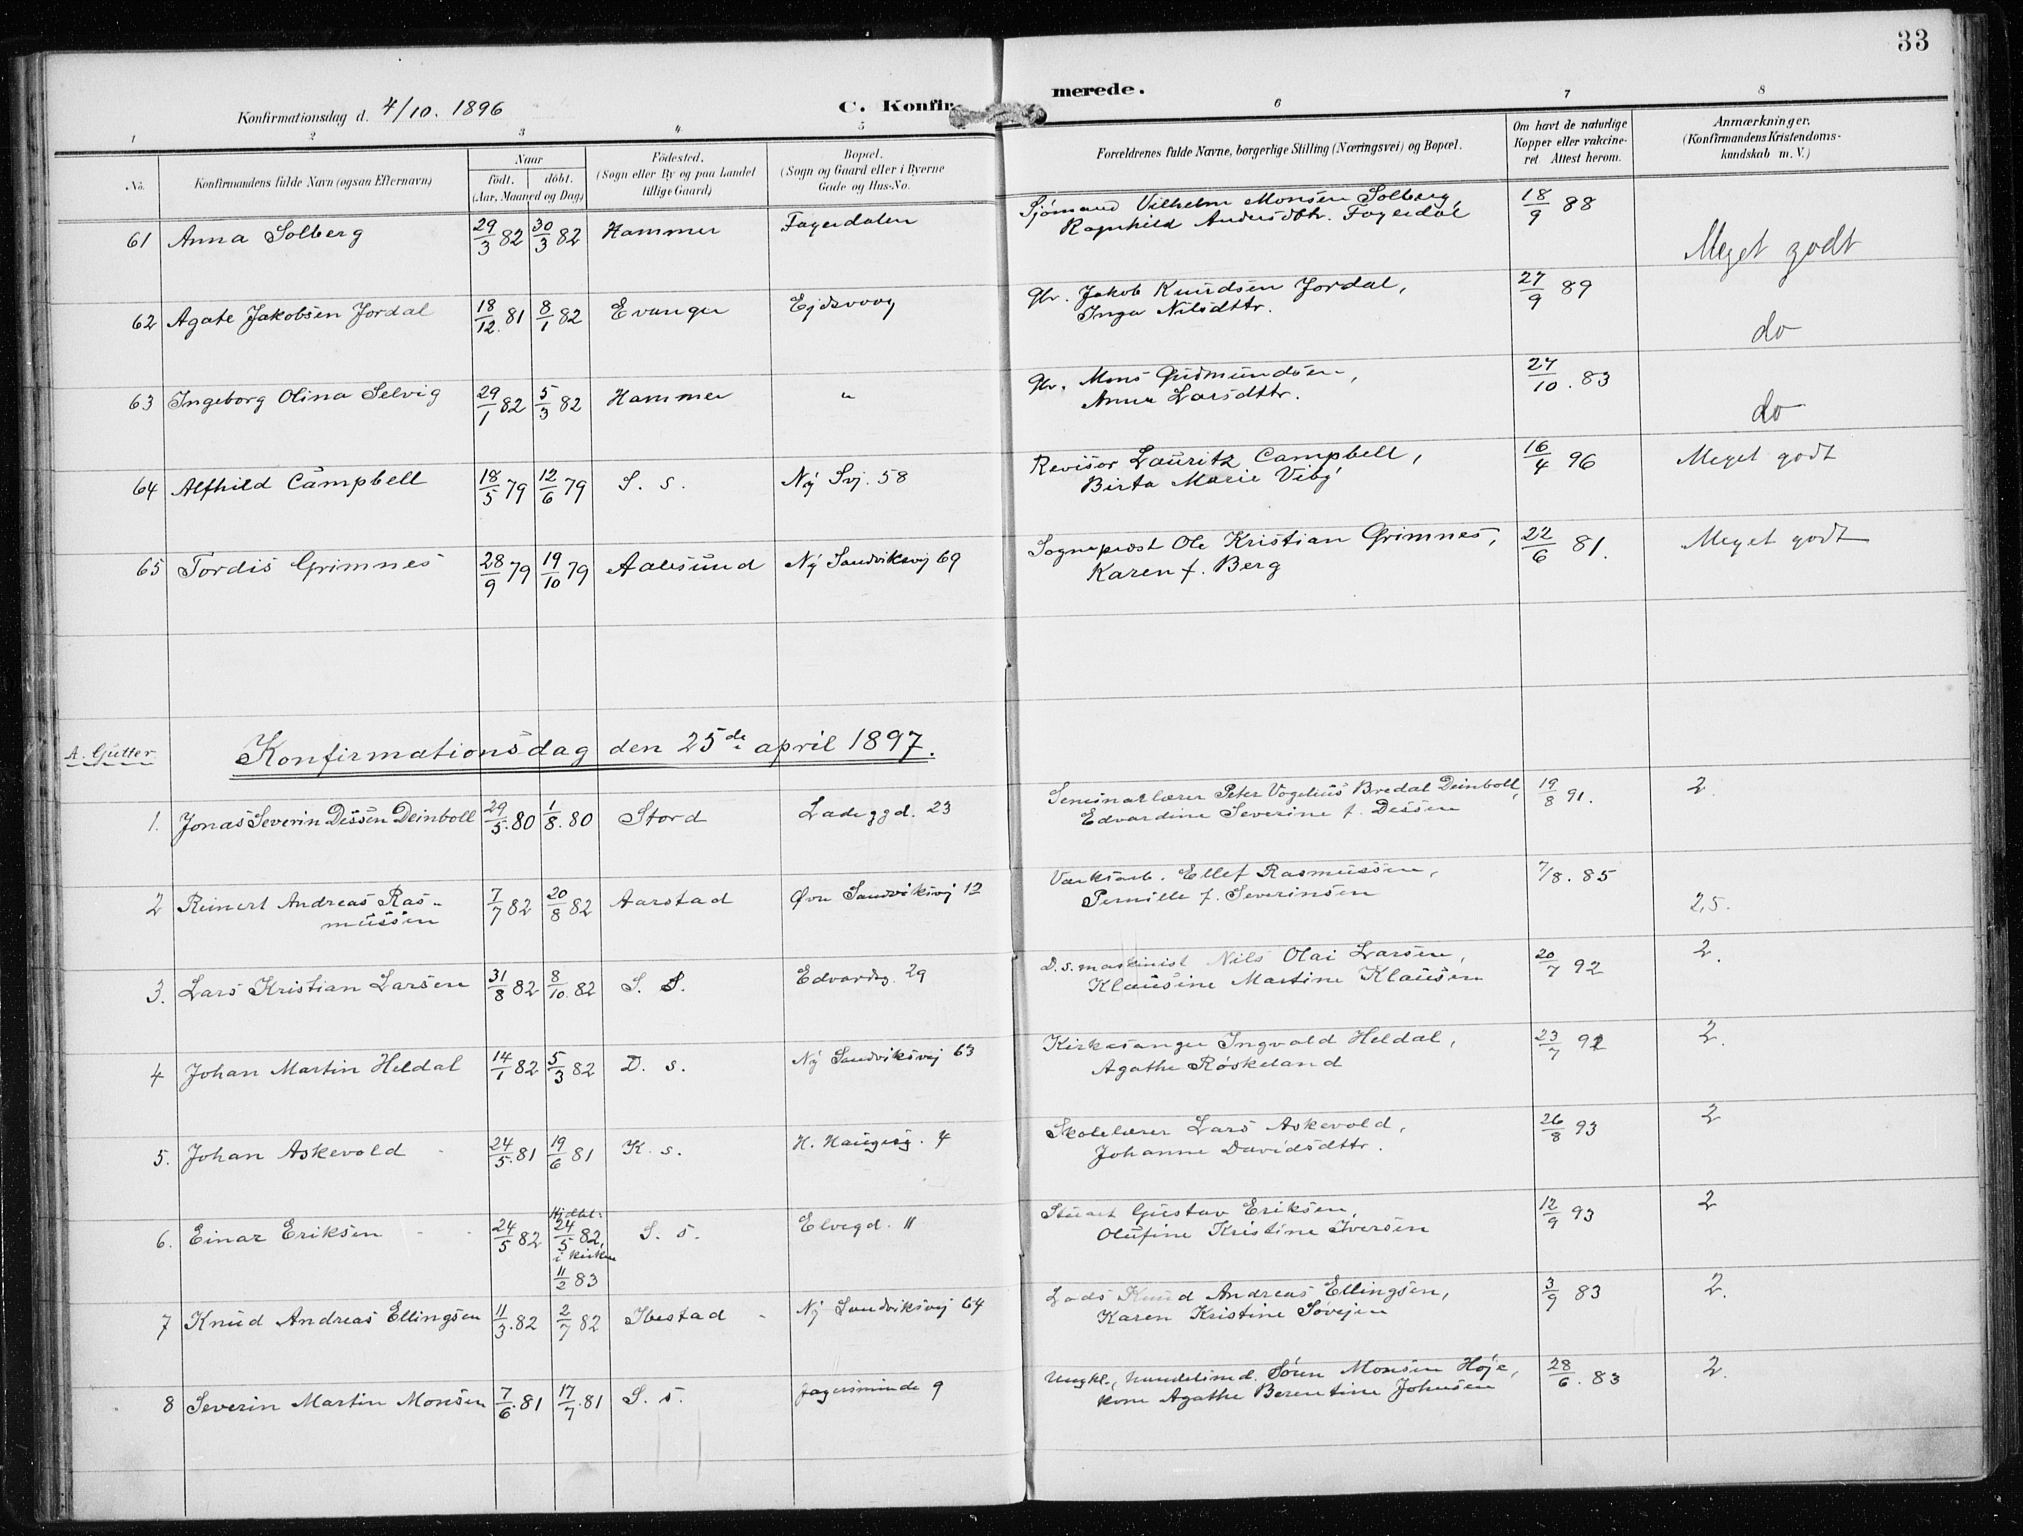 33
Konfirmationsdag d. 4/10. 1896
C. Konfirmerede.
1 2 3 4 5 6 7 8
No. Konfirmandens fulde Navn (ogsaa Efternavn)
Naar
født. døbt.
(Aar, Maaned og Dag)
Fødested.
(Sogn eller By og paa Landet
tillige Gaard)
Bopæl.
(Sogn og Gaard eller i Byerne
Gade og Hus-No.
Forældrenes fulde Navne, borgerlige Stilling (Næringsvei) og Bopæl.
Om havt de naturlige
Kopper eller vakcine-
ret Attest herom.
Anmærkninger.
(Konfirmandens Kristendoms-
kundskab m. V.)
61 Anna Solberg 29/3 82 30/3 82 Hammer Fagerdalen Sjømand Vilhelm Monsen Solberg, 18/9 88 Meget godt
Ragnhild Andersdtr. Fagerdal
62 Agate Jakobsen Jordal 18/12. 81 8/1 82 Evanger Ejdsvaag Gbr. Jakob Knudsen Jordal, 27/9 89 do
Inga Nilsdttr.
63 Ingeborg Olina Selvig 29/1 82 5/3 82 Hammer " Gbr. Mons Gudmundsen, 27/10. 83 do
Anna Larsdttr.
64 Alfhild Campbell 18/5 79 12/6 79 S. s. Ny Svj. 58 Revisor Lauritz Campbell, 16/4 96 Meget godt
Birta Marie Viby
65 Tordis Grimnes 28/9 79 19/10 79 Aalesund Ny Sandviksvj 69 Sogneprest Ole Kristian Grimnes, 22/6 81. Meget godt
Karen f. Berg
A. Gutter Konfirmationsdag den 25de april 1897.
1. Jonas Severin Dessen Deinboll 29/5. 80 1/8. 80 Stord Ladeggd. 23 Seminarlærer Peter Vogelius Bredal Deinboll, 19/8 91. 2.
Edvardine Severine f. Dessen
2 Reinert Andreas Ras- 7/7 82 20/8 82 Aarstad Øvre Sandviksvj 12 Værksarb. Ellef Rasmussen, 7/8. 85 2,5.
mussen Pernille f. Severinsen
3. Lars Kristian Larsen 31/8 82 8/10. 82 S. S. Edvardsg. 29 D. s. maskinist Nils Olai Larsen, 20/7 92 2.
Klausine Martine Klausen
4 Johan Martin Heldal 14/1 82 5/3 82 D. s. Ny Sandviksvej 63 Kirkesanger Ingvald Heldal, 23/7 92 2.
Agathe Røskeland
5. Johan Askevold 24/5. 81 19/6 81 K. s. H. Haugesg. 4 Skolelærer Lars Askevold, 26/8 93 2
Johanne Davidsdttr.
6. Einar Eriksen 24/5 82 Hjdbt. 24/5 82, i kirken 11/2 83 S. s. Elvegd. 11 Stuart Gustav Eriksen, 12/9 93 2
Olufine Kristine Iversen
7 Knud Andreas Ellingsen 11/3. 82 2/7 82 Ibestad Ny Sandviksvej 64 Lods Knud Andreas Ellingsen, 3/9 83 2.
Karen Kristine Søvejen
8 Severin Martin Monsen 7/6. 81 17/7. 81 S. s. Fagersminde 9 Ungkl., handelsmd. Søren Monsen Høje, 28/6. 83 2.
kone Agathe Berentine Johnsen